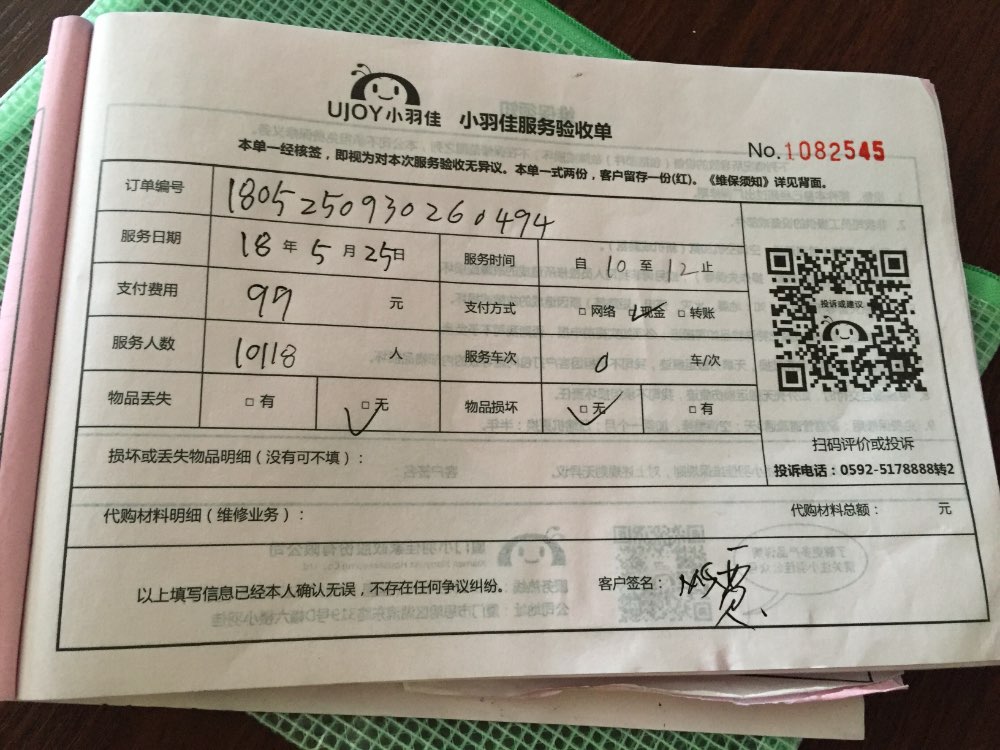 UJOY小羽佳 小羽佳服务验收单
No.1082545
本单一经核签，即视为对本次服务验收无异议。本单一式两份，客户留存一份(红)。《维保须知》详见背面。
订单编号 1805250930260494
服务日期 18 年 5 月 25 日 服务时间 自 10 至 12 止
支付费用 99 元 支付方式 □网络 ✓现金 □转账
服务人数 10118 人 服务车次 0 车/次
物品丢失 □有 □无 ✓ 物品损坏 □无 ✓ □有
投诉或建议
扫码评价或投诉
投诉电话：0592-5178888转2
损坏或丢失物品明细（没有可不填）：
代购材料明细（维修业务）： 代购材料总额： 元
以上填写信息已经本人确认无误，不存在任何争议纠纷。 客户签名：